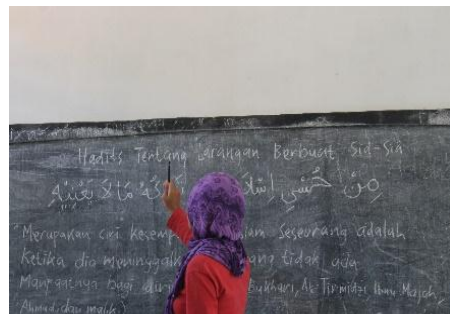 Hadits Tentang Larangan Berbuat Sia-Sia
مِنْ حُسْنِ تَرْكُهُ مَا لَا يَعْنِيْهِ
"Merupakan ciri seseorang adalah
Ketika dia yang tidak ada
Manfaatnya bagi Bukhari, At-Tirmidzi Ibnu Majah,
Ahmad dan malik)